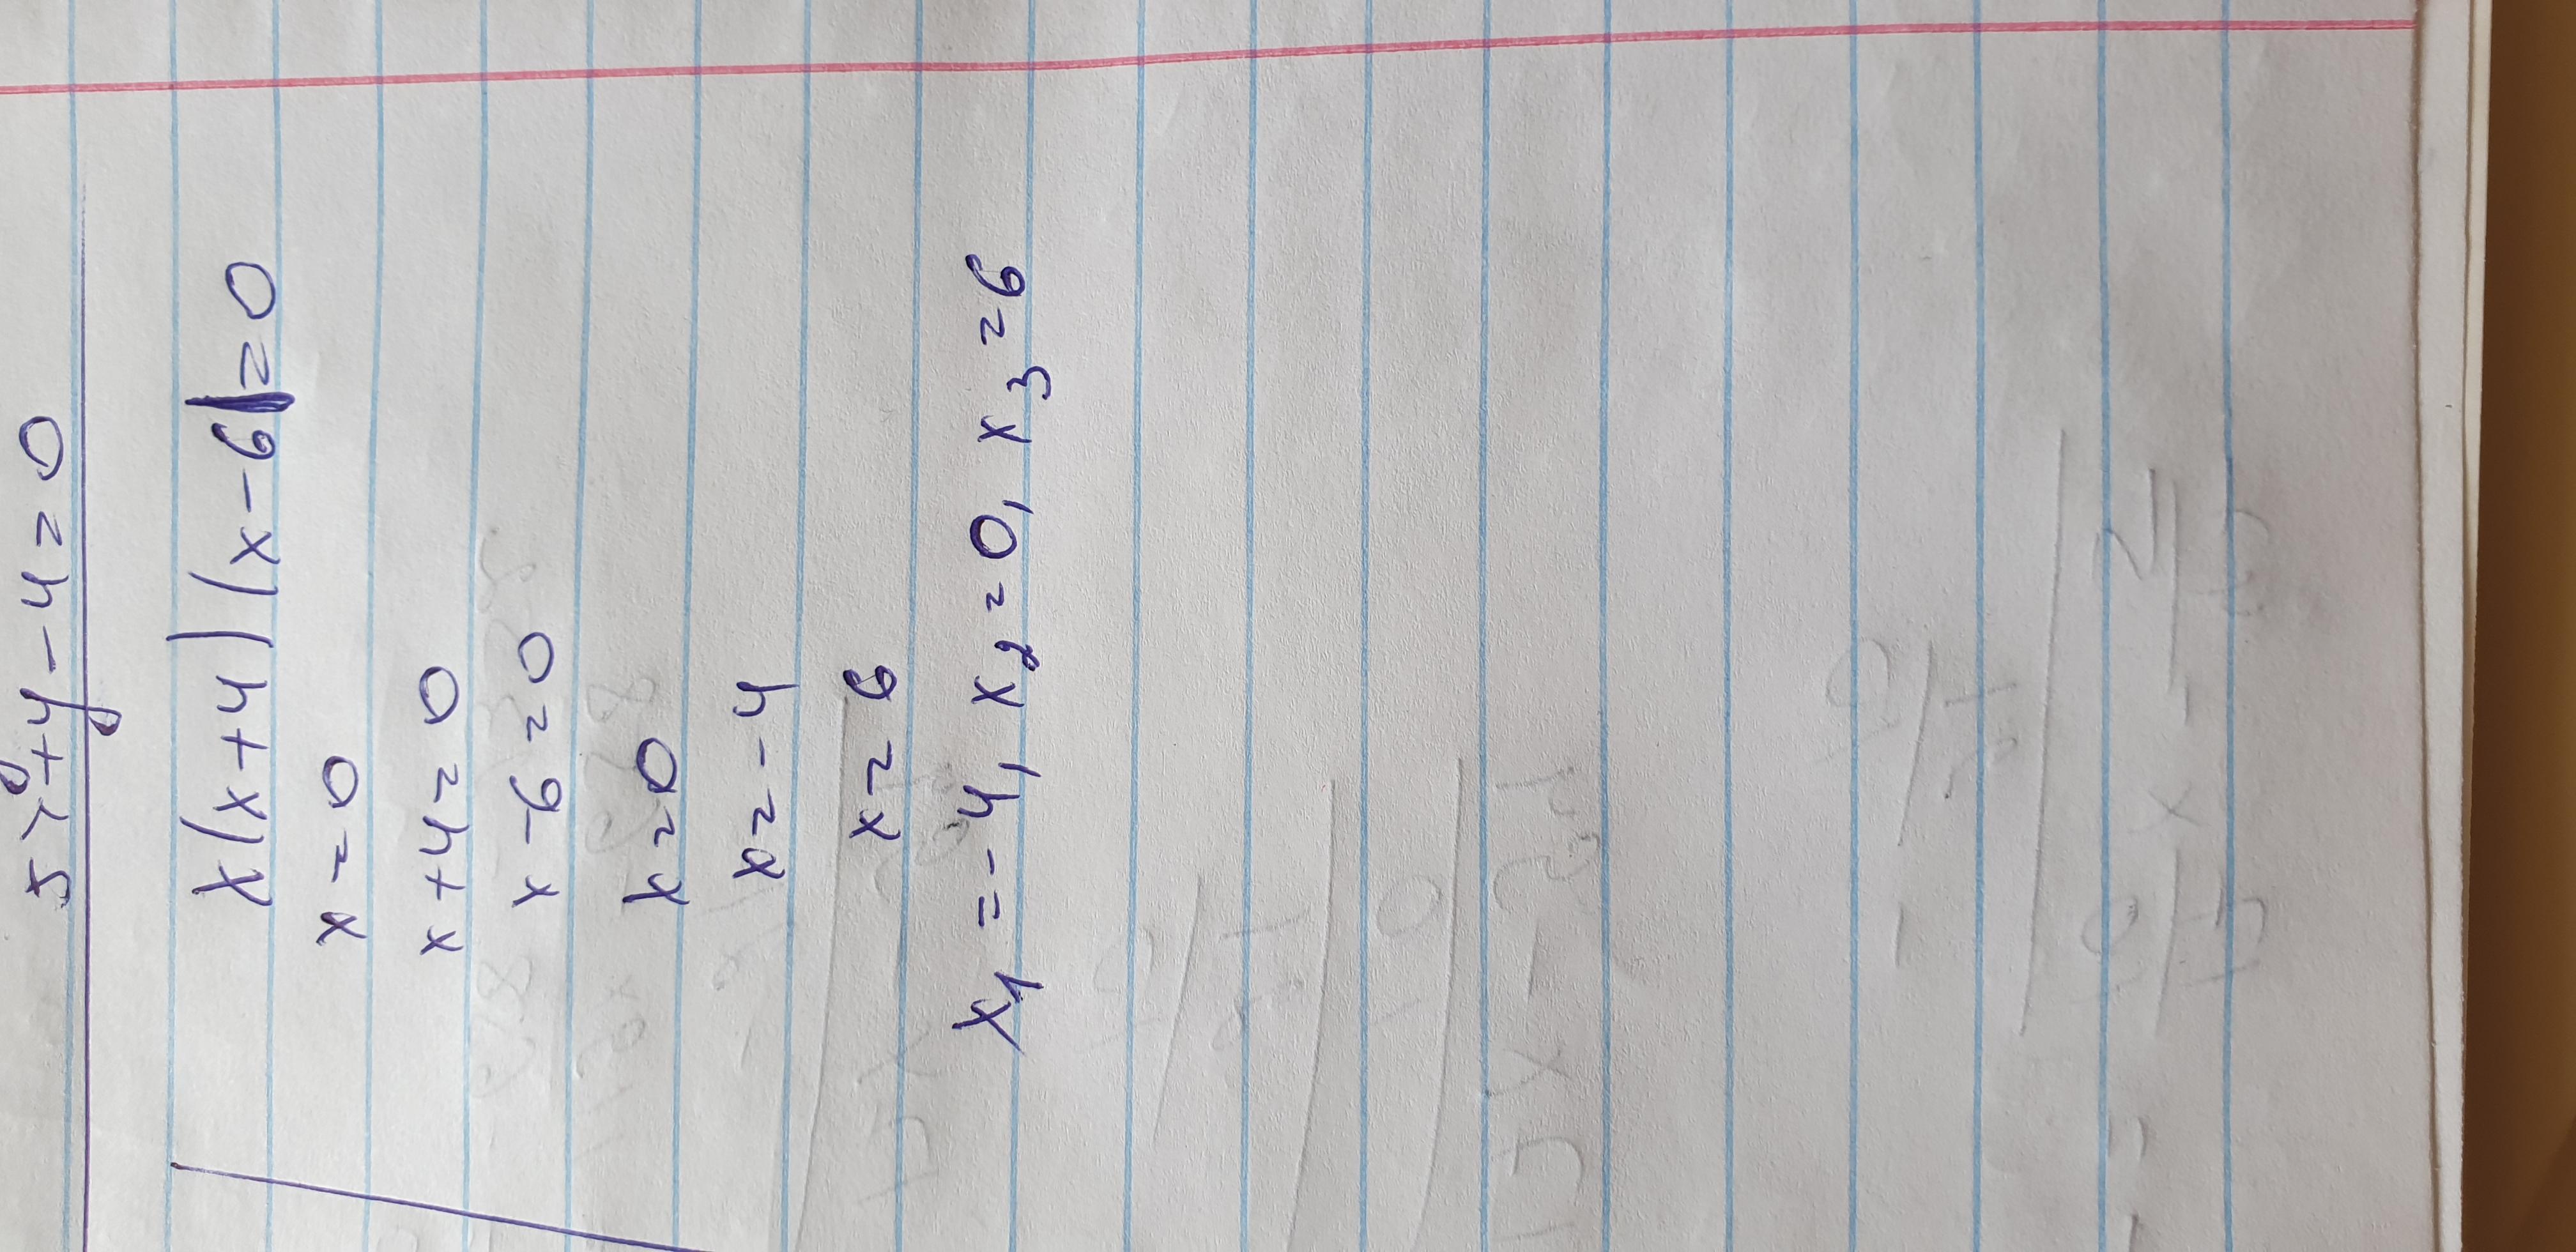 +y-4=0
x(x+4)(x-6)=0
x=0
x+4=0
x-6=0
x=0
x=-4
x=6
x₁=-4, x₂=0, x₃=6